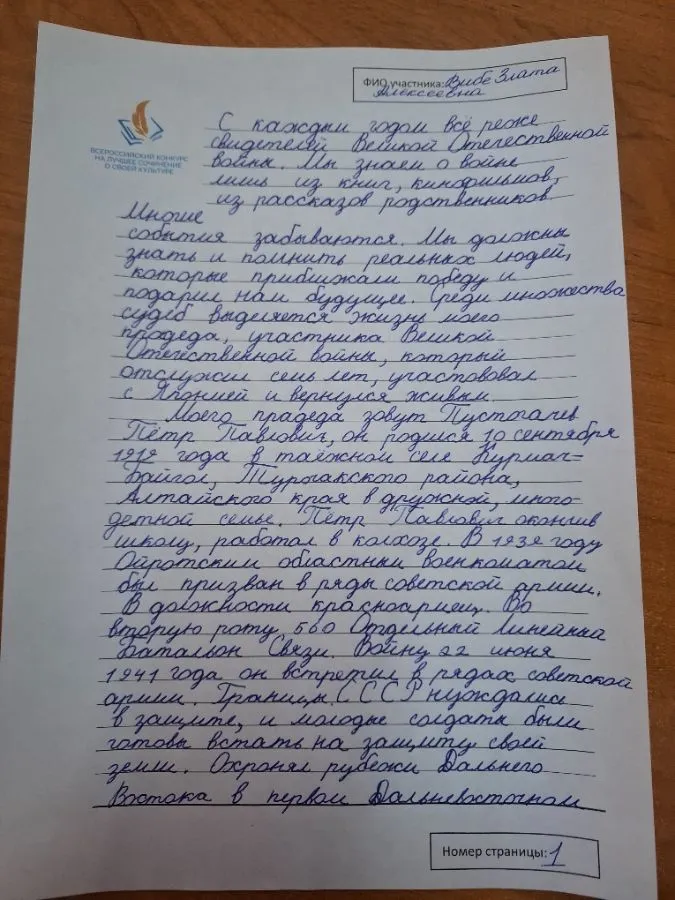 ФИО участника: Вибе Злата
Алексеевна
ВСЕРОССИЙСКИЙ КОНКУРС
НА ЛУЧШЕЕ СОЧИНЕНИЕ
О СВОЕЙ КУЛЬТУРЕ
С каждым годом всё реже
свидетелей Великой Отечественной
войны. Мы знаем о войне
лишь из книг, кинофильмов,
из рассказов родственников.
Многие
события забываются. Мы должны
знать и помнить реальных людей,
которые приближали победу и
подарил нам будущее. Среди множества
судеб выделяется жизнь моего
прадеда, участника Великой
Отечественной войны, который
отслужил семь лет, участвовал
с Японией и вернулся живым.
Моего прадеда зовут Пустогачев
Пётр Павлович, он родился 10 сентября
года в таёжном селе Курмач-
Байгол, Турочакского района,
Алтайского края в дружной, много-
детной семье. Пётр Павлович окончив
школу, работал в колхозе. В году
Ойротским областным военкоматом
был призван в ряды советской армии.
В должности красноармеец. Во
вторую роту 560 Отдельный Линейный
Батальон Связи. Войну 22 июня
1941 года он встретил в рядах советской
армии. Границы СССР нуждались
в защите, и молодые солдаты были
готовы встать на защиту своей
земли. Охронял рубежи Дальнего
Востока в первом Дальневосточном
Номер страницы: 1